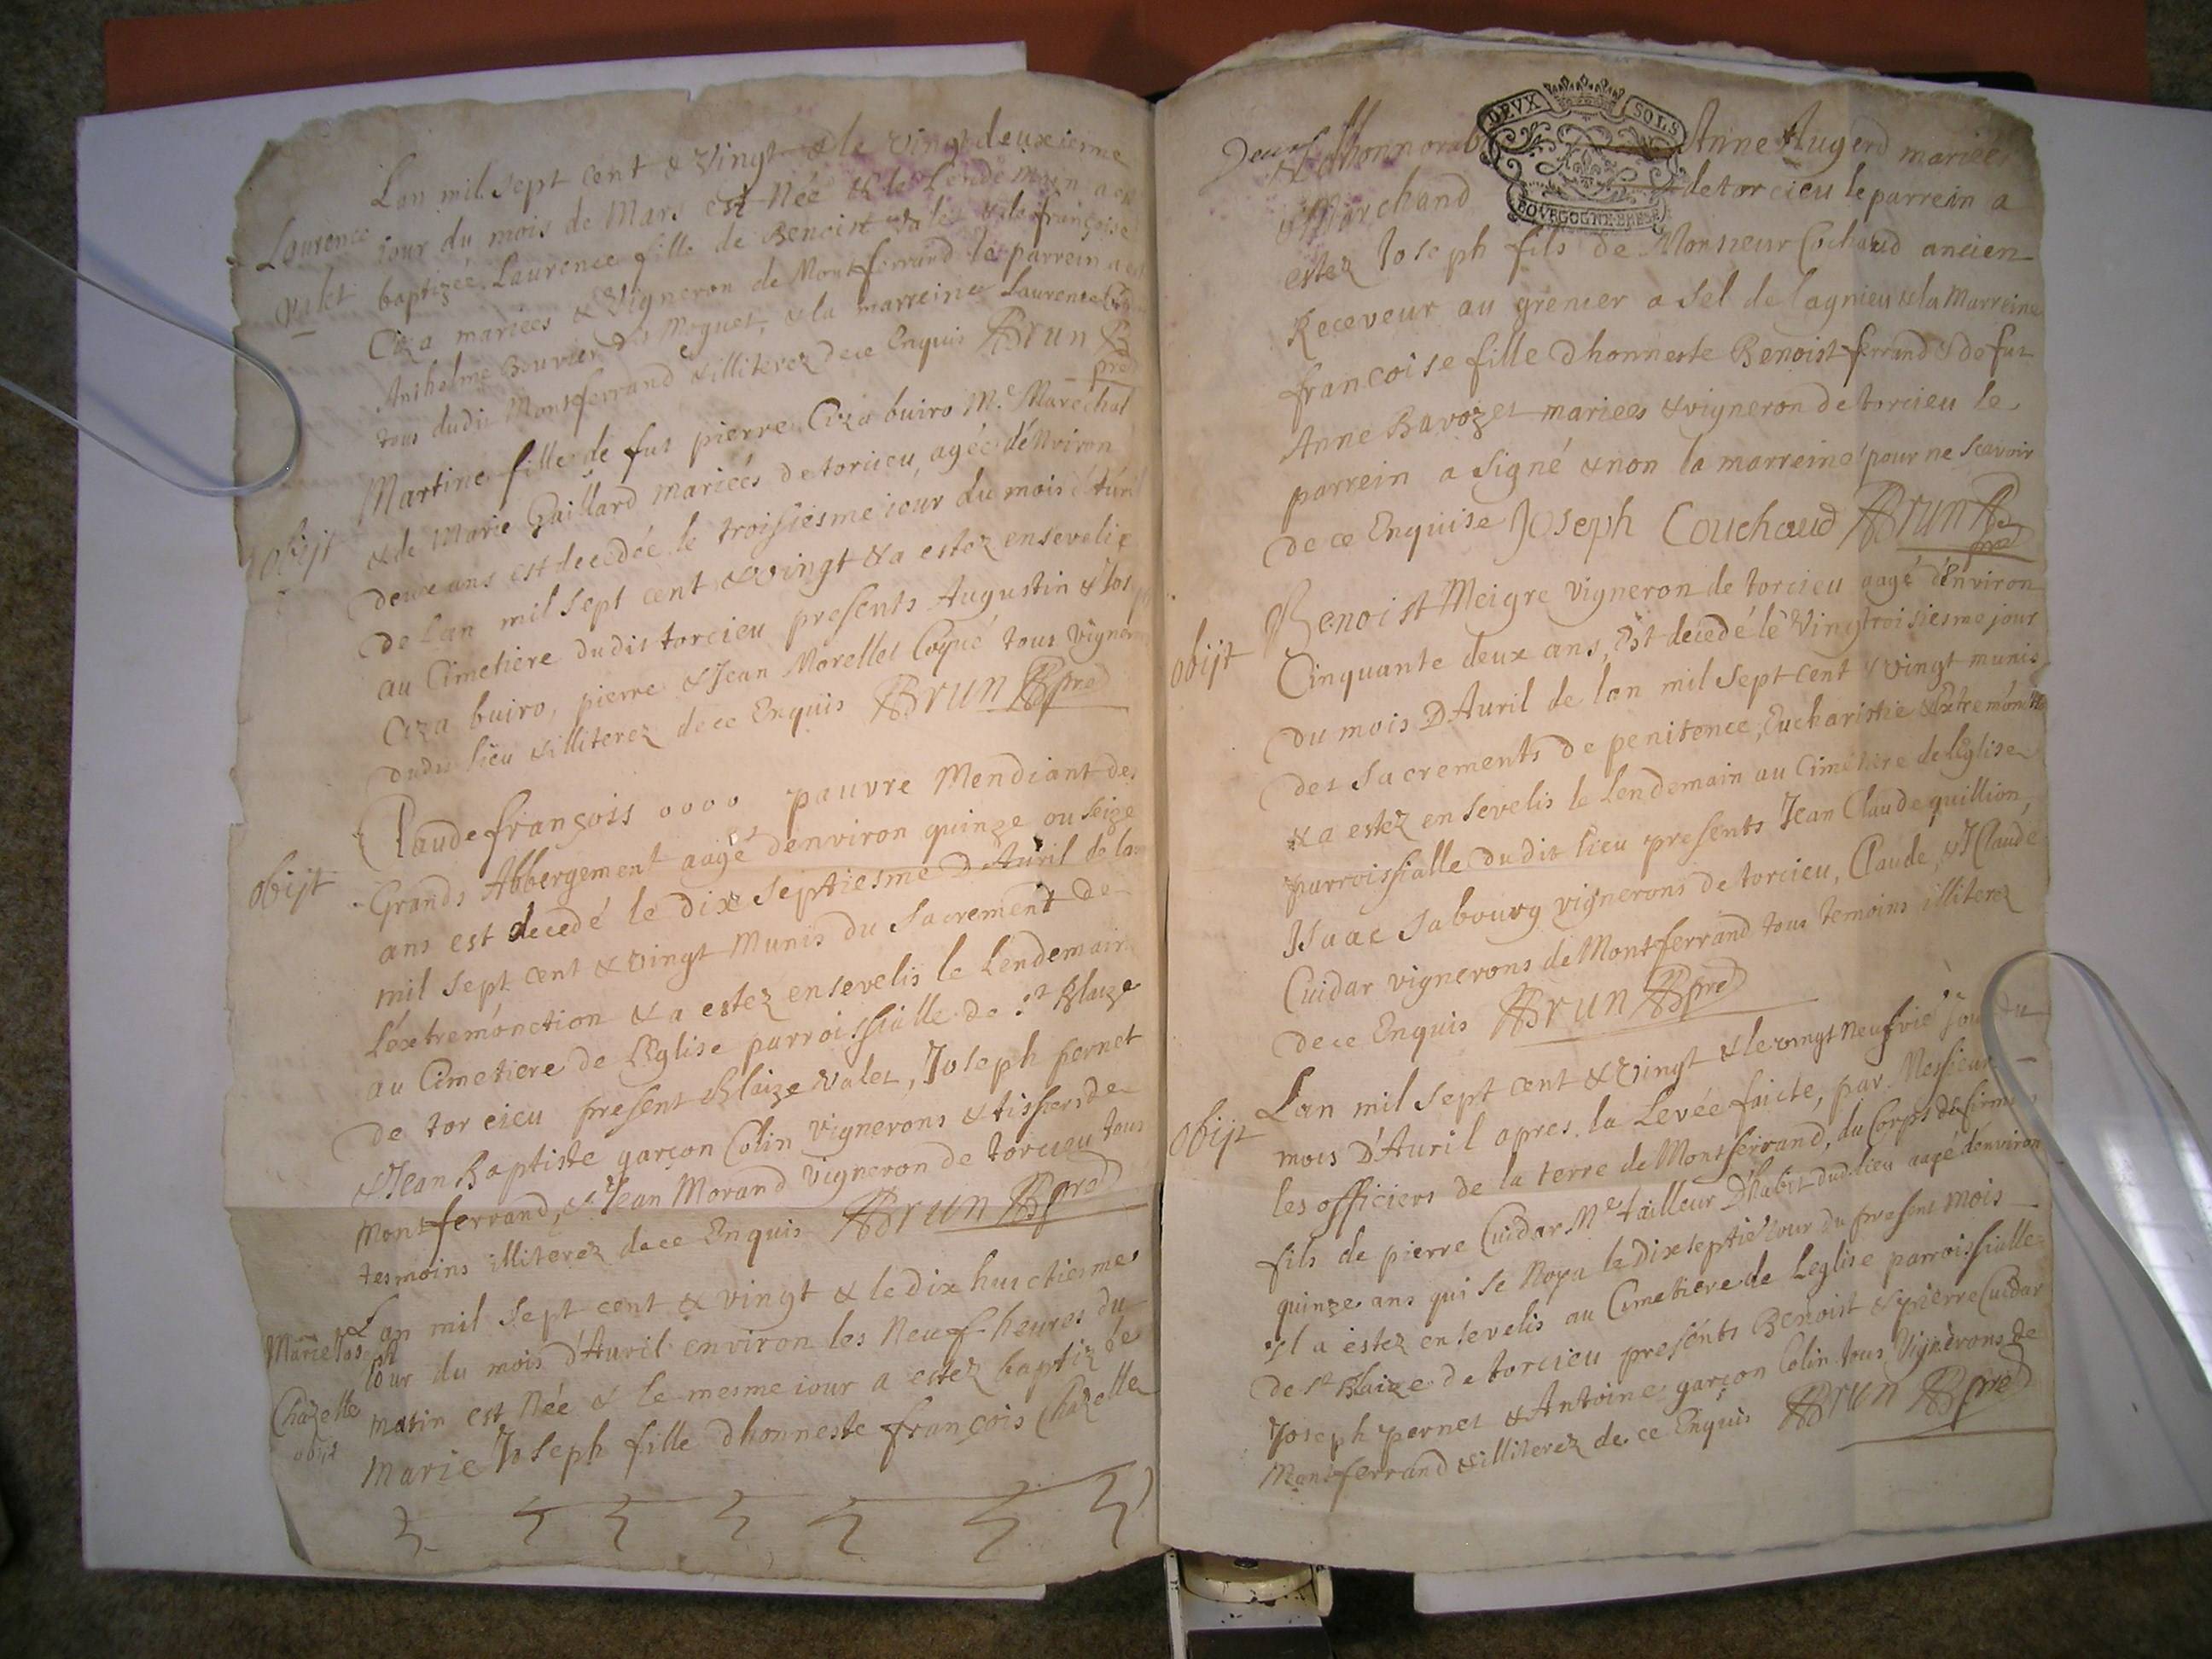 Lan mil sept cent & vingt & le vingt deuxieme
Laurence
valet
jour du mois de Mars est Née & le Lendemain a esté
baptizée Laurence fille de Benoist valet & de françoise
Ciza mariees & Vigneron de Montferrand le parrein a est
Anthelme Bouvier dit Moguet, & la marreine Laurence
tous dudit Montferrand & illiterez de ce Enquis Brun
pre
obijt
Martine fille de fut pierre Ciza buiro Me Marechal
& de Marie Gaillard mariées de torcieu, agée d'énviron
deux ans est decedée le troissiesme iour du mois d'Auril
de Lan mil sept cent & vingt & a estez ensevelie
au Cimetiere dudit torcieu presents Augustin & Jos
Ciza buiro, pierre & Jean Morellet Coqué tous vignerons
dudit lieu & illiterez de ce Enquis Brun pre
obijt
Claude françois oooo pauvre Mendiant des
Grands Abbergement aagé denviron quinze ou seize
ans est decedé le dix septiesme D'Auril de lan
mil sept cent & vingt Munis du Sacrement de
L'éxtremónction & a estez ensevelis le Lendemain
au Cimetiere de L'Eglise parroissialle de St Blaize
de torcieu present Blaize Valet, Joseph pernet
& Jean Baptiste garçon Colin vignerons & tissiers de
Montferrand, & Jean Morand vigneron de torcieu tous
tesmoins illiterez de ce Enquis Brun pre
Marie Joseph
Chazelle
obijt
Lan mil sept cent & vingt & le dix huictiesme
iour du mois d'Auril environ les Neuf heures du
matin est Née & le mesme iour a estez baptizée
Marie Joseph fille dhonneste françois Chazelle
DEVX SOLS
BOVRGOGNE BRESSE
Anne Augerd mariées
& Marchand de torcieu le parrein a
estez Joseph fils de Monsieur Cochaud ancien
Receveur au grenier a sel de lagnieu & la Marreine
francoise fille dhonneste Benoist ferrand & de fut
Anne Bavozet mariees & vigneron de torcieu le
parrein a signé & non la marreine pour ne scavoir
de ce Enquise Joseph Couchaud Brun
pre
obijt
Benoist Meigre vigneron de torcieu aagé d'Environ
Cinquante deux ans, Est decedé le vingtroisiesme jour
du mois D'Auril de lan mil sept cent & vingt munis
des Sacrements de penitence, Eucharistie & Extremónction
& a estez ensevelis le Lendemain au Cimetiere de L'Eglise
parroissialle dudit lieu presents Jean Claude quillion,
Isaac Sabourg vignerons de torcieu, Claude, & J Claude
Cuidar vignerons de Montferrand tous temoins illiterez
de ce Enquis Brun pre
obijt
Lan mil sept cent & vingt & le vingt neufvie jour du
mois D'Auril apres la Levée faicte, par Messieurs
les officiers de la terre de Montferrand, du Corps de
fils de pierre Cuidar Me tailleur D'habit dud. lieu aagé denviron
quinze ans qui se Noya le Dix septie iour du present mois
Il a estez ensevelis au Cimetiere de Leglise parroissialle
de St Blaize de torcieu presents Benoist & pierre Cuidar
Joseph pernet & Antoine garçon Colin tous Vignerons de
Montferrand & illiterez de ce Enquis Brun pre